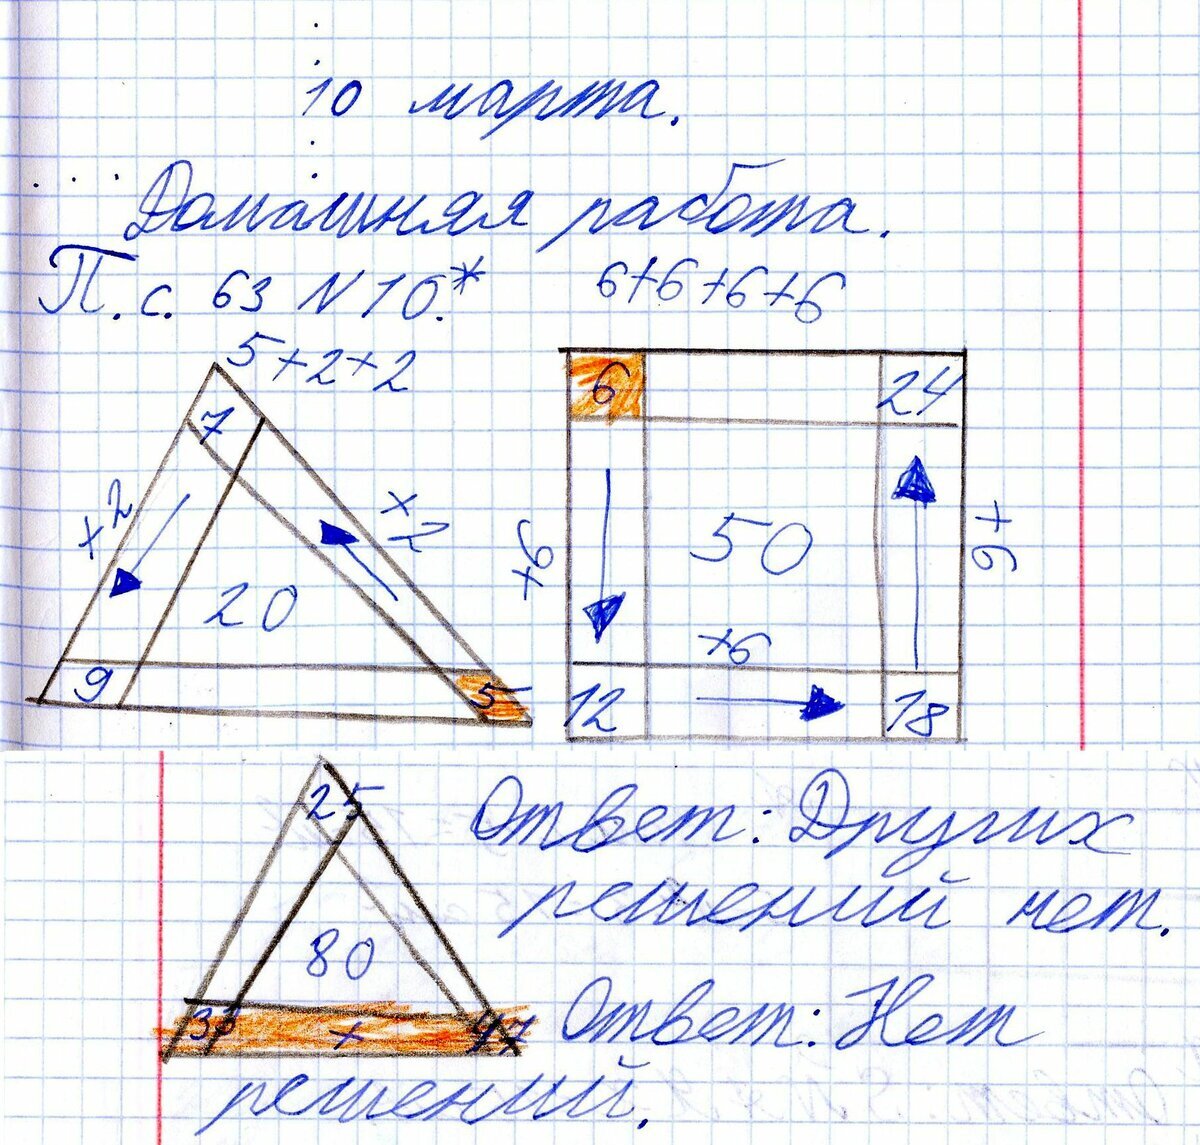 10 марта.
Домашняя работа.
П. с. 63 N 10.*
6+6+6+6
5+2+2
7
+2
+2
20
9
5
6
24
+6
50
+6
+6
12
18
25
80
+
Ответ: Других
решений нет.
Ответ: Нет
решений.